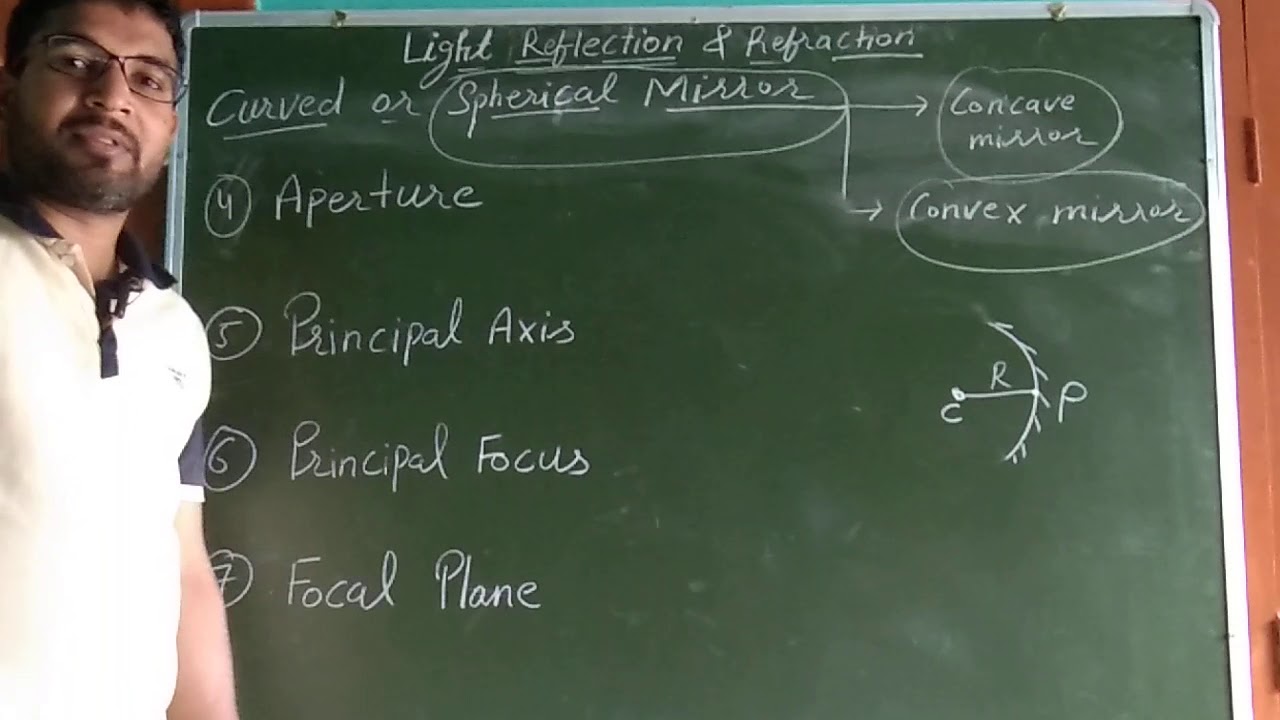 Light Reflection & Refraction
Curved or Spherical Mirror
Concave
mirror
④ Aperture
Convex mirror
⑤ Principal Axis
R
C
P
⑥ Principal Focus
⑦ Focal Plane